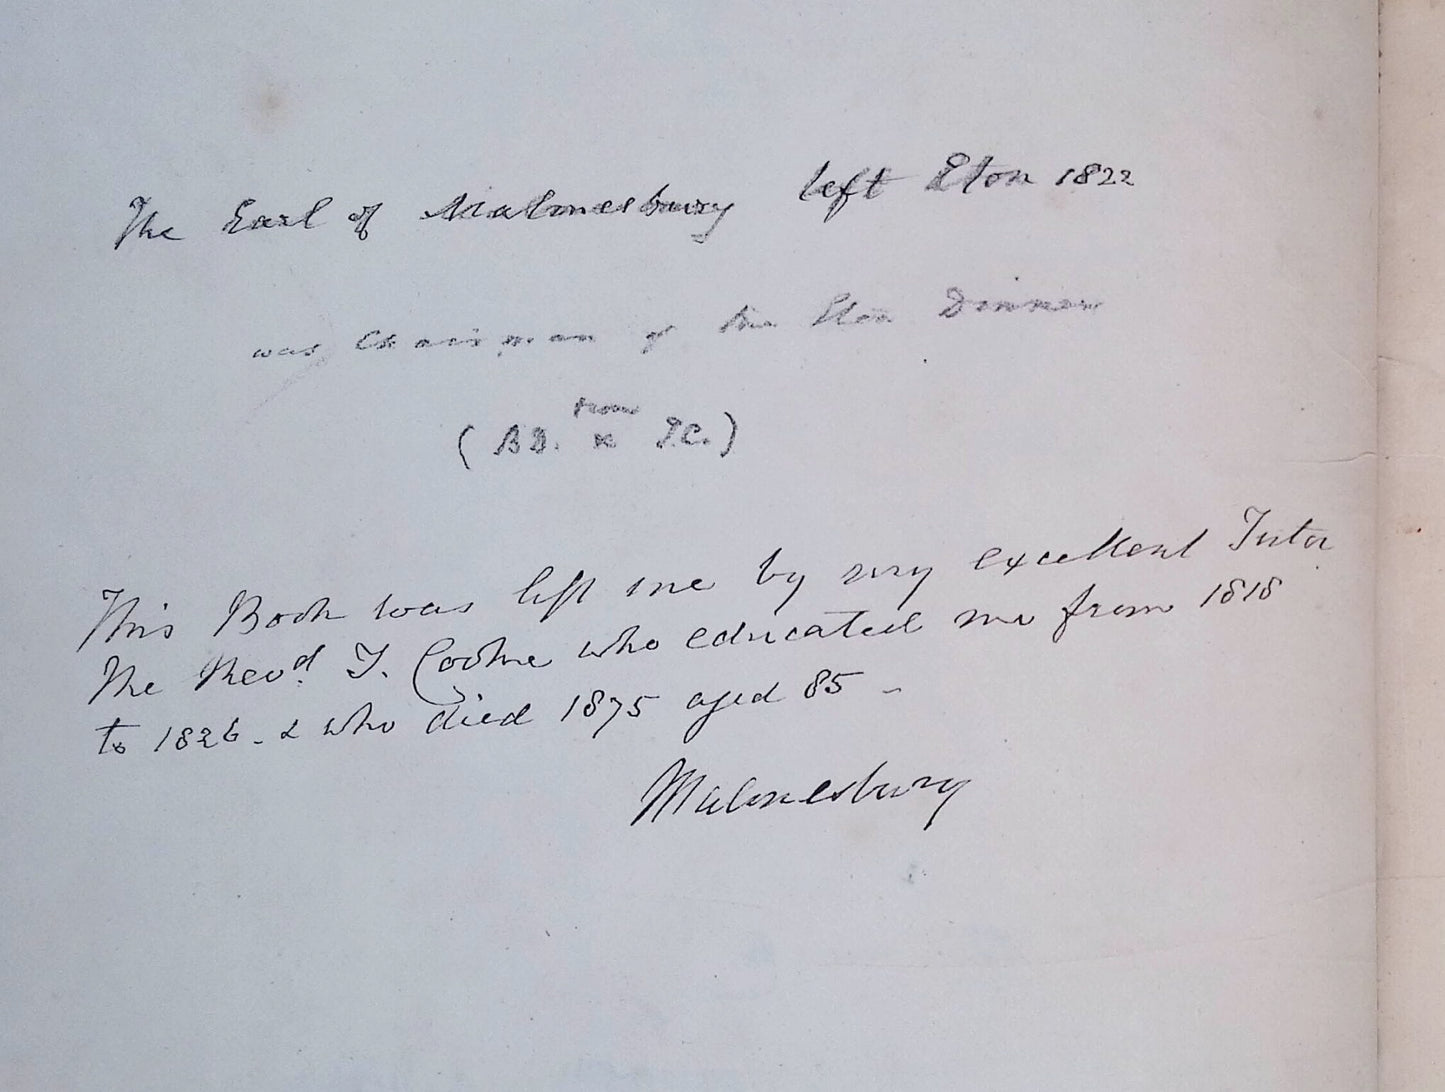 The Earl of Malmesbury left Eton 1822
was Chairman of the Eton Dinner
from
(B.D. x T.C.)
This Book was left me by my excellent Tutor
the Revd. T. Cooke who educated me from 1818
to 1826 - & who died 1875 aged 85 -
Malmesbury